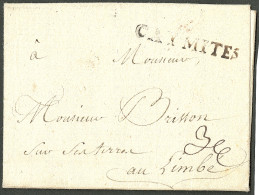 CAYMITES
à Monsieur
Monsieur Brisson
sur sa terre
au Limbé